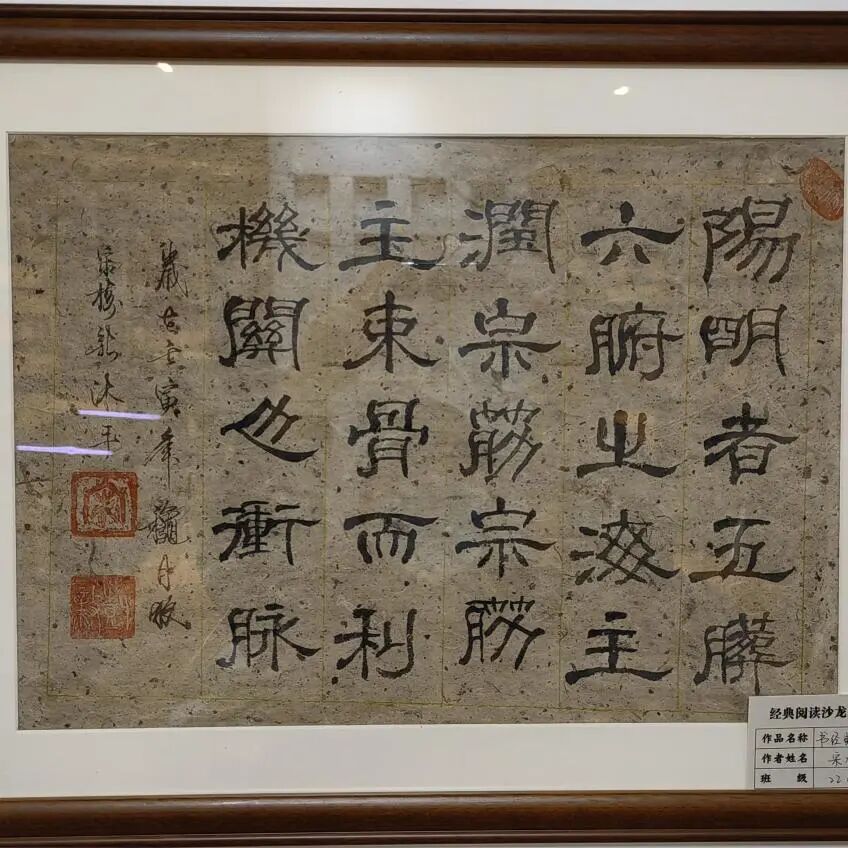 陽明者五臟
六腑之海主
潤宗筋宗筋
主束骨而利
機關也衝脉
歲在壬寅年 月
经典阅读沙龙
作品名称 书经
作者姓名
班 级 22